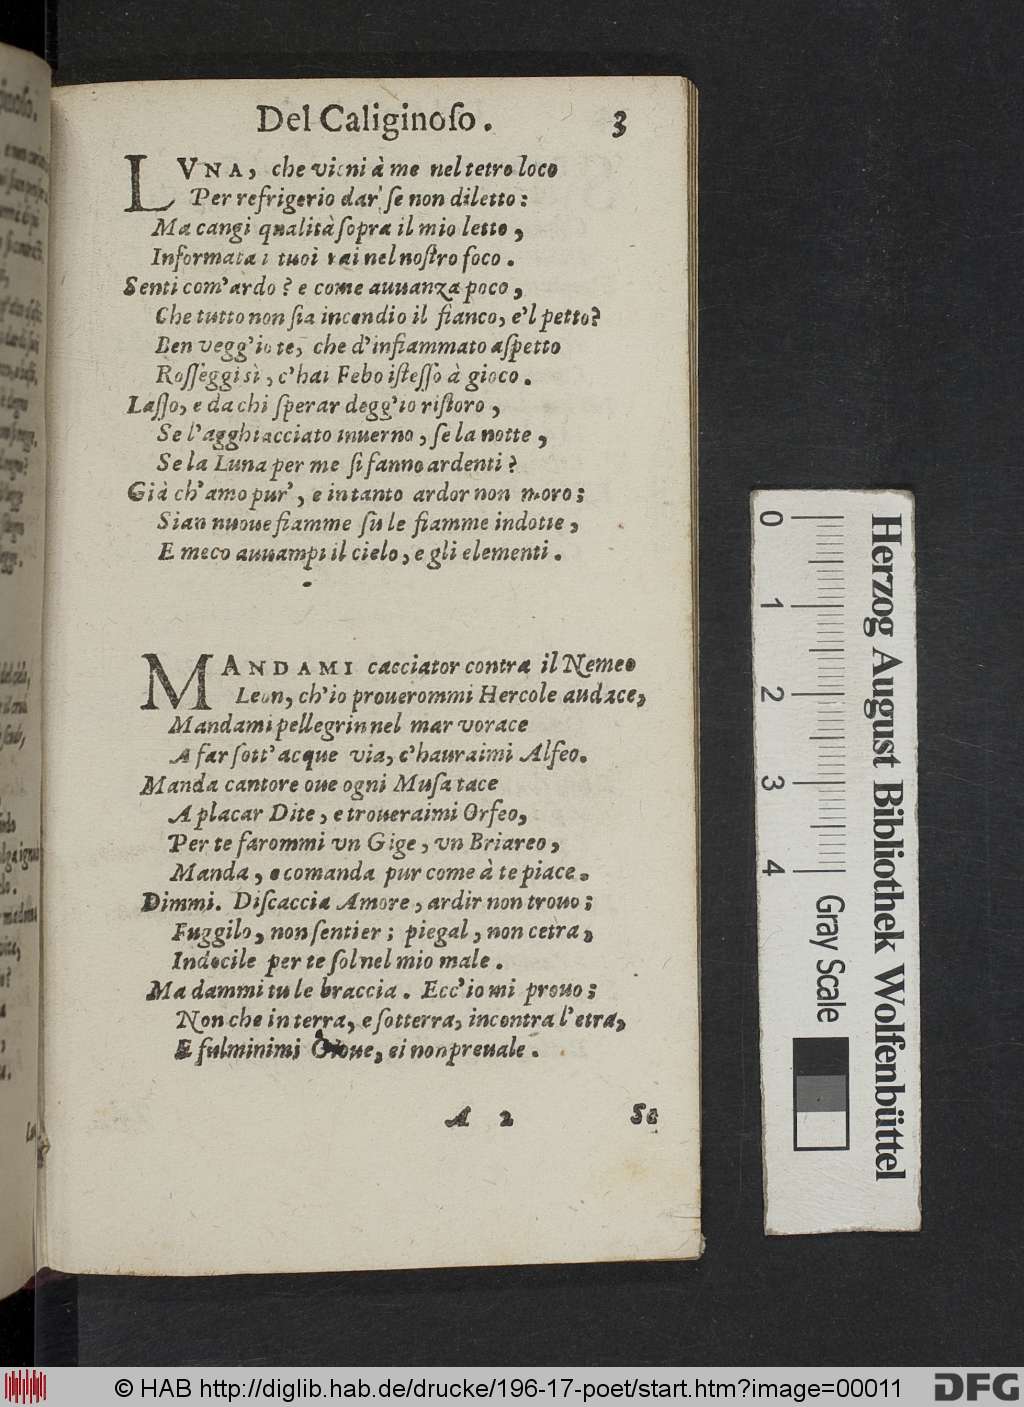 Del Caliginoſo. 3
LVNA, che vieni à me nel tetro loco
Per refrigerio dar' ſe non diletto:
Ma cangi qualità ſopra il mio letto,
Informata i tuoi rai nel noſtro foco.
Senti com'ardo? e come auuanza poco,
Che tutto non ſia incendio il fianco, e'l petto?
Ben vegg'io te, che d'infiammato aſpetto
Roſſeggi sì, c'hai Febo iſteſſo à gioco.
Laſſo, e da chi ſperar degg'io riſtoro,
Se l'agghiacciato inuerno, ſe la notte,
Se la Luna per me ſi fanno ardenti?
Già ch'amo pur', e in tanto ardor non moro;
Sian nuoue fiamme ſù le fiamme indotte,
E meco auuampi il cielo, e gli elementi.
MANDAMI cacciator contra il Nemeo
Leon, ch'io prouerommi Hercole audace,
Mandami pellegrin nel mar vorace
A far ſott'acque via, c'hauraimi Alfeo.
Manda cantore oue ogni Muſa tace
A placar Dite, e troueraimi Orfeo,
Per te farommi vn Gige, vn Briareo,
Manda, e comanda pur come à te piace.
Dimmi. Diſcaccia Amore, ardir non trouo;
Fuggilo, non ſentier; piegal, non cetra,
Indocile per te ſol nel mio male.
Ma dammi tu le braccia. Ecc'io mi prouo;
Non che in terra, e ſotterra, incontra l'etra,
E fulminimi Gioue, ei non preuale.
A 2 Se
0 1 2 3 4
Gray Scale
Herzog August Bibliothek Wolfenbüttel
© HAB http://diglib.hab.de/drucke/196-17-poet/start.htm?image=00011
DFG